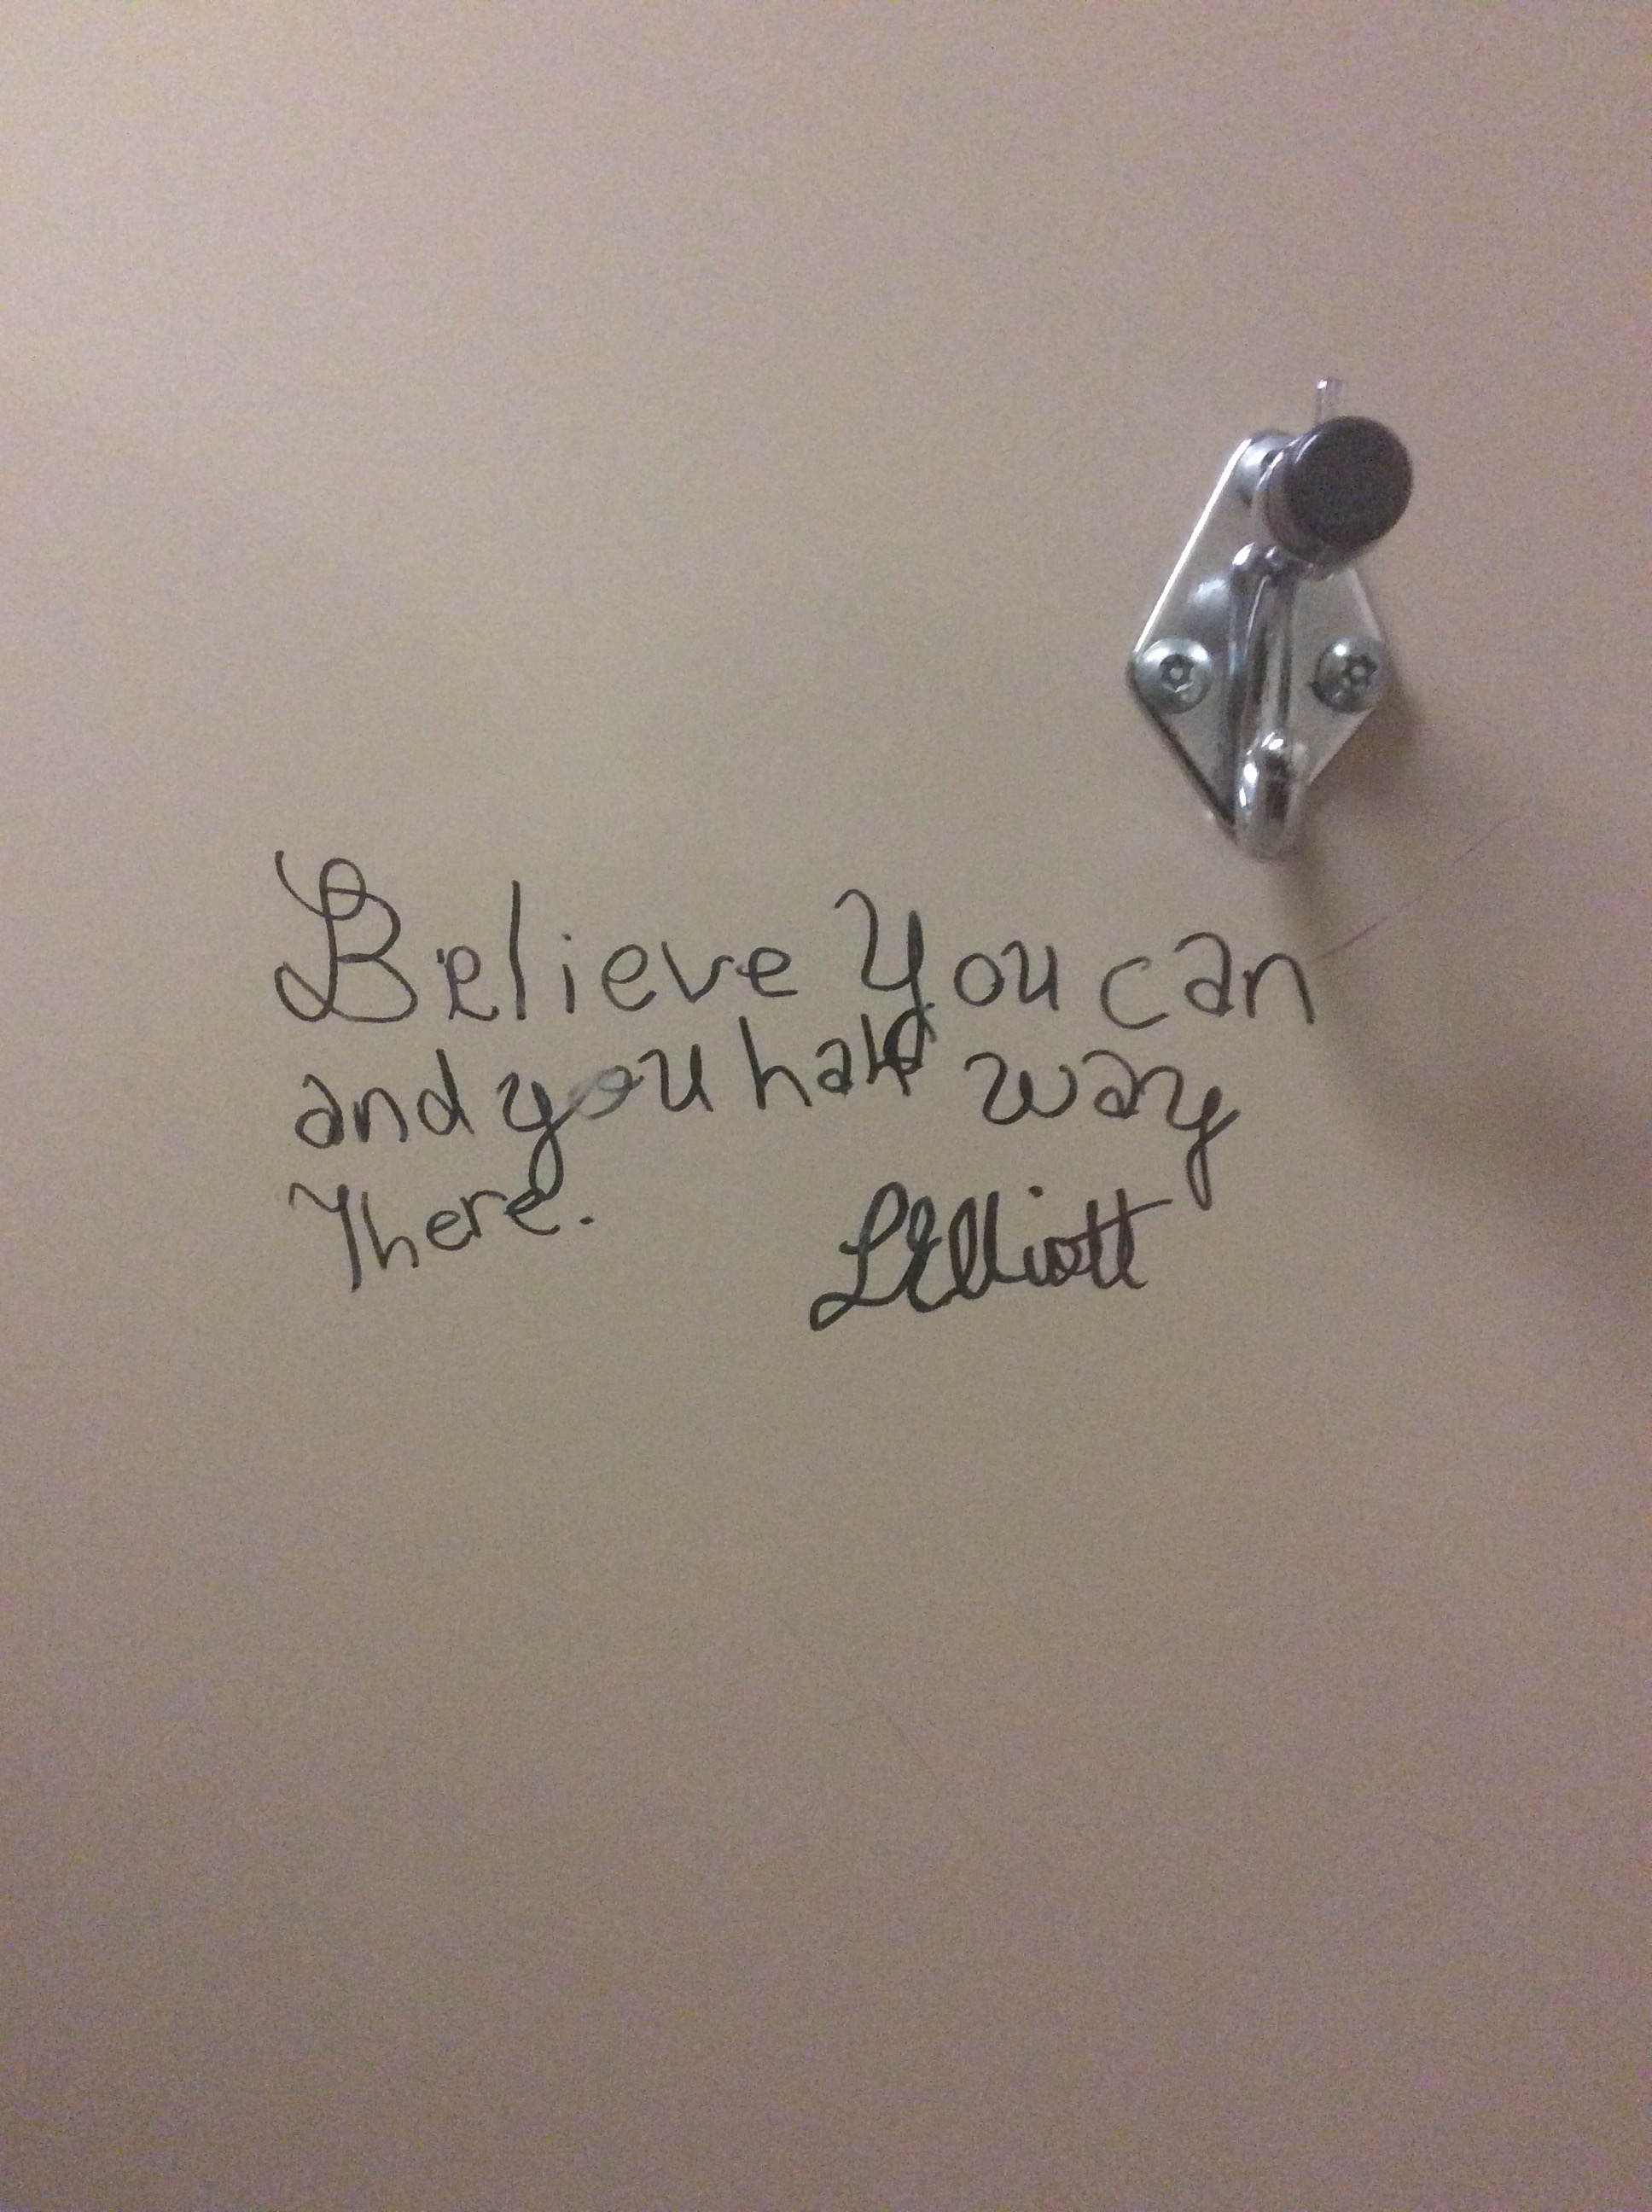 Believe You can
and you half way
There.
LElliott